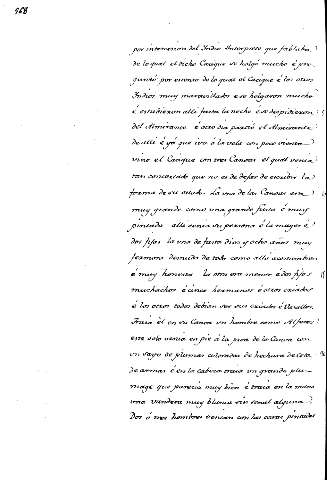 168
por intervencion del Indio Interprete que fablaba,
de lo qual el dicho Cacique se holgó mucho é pre-
guntó por menor de lo qual el Cacique é los otros
Indios muy maravillados é se holgaron mucho
é estuvieron alli fasta la noche é se despidieron
del Almirante é otro dia partió el Almirante
de alli é yá que iva á la vela con poco viento
vino el Cacique con tres Canoas el qual venia
tan concertado que no es de dejar de escribir la
forma de su estado. La una de las Canoas era
muy grande como una grande fusta é muy
pintada alli venia su persona é la muger é
dos fijas la una de fasta diez y ocho años muy
fermosa desnuda del todo como alli acostumbran
é muy honesta la otra era menor é dos fijos
muchachos é cinco hermanos é otros criados
é los otros todos debian ser sus criados é Vasallos.
Traia él en su Canoa un hombre como Alferez
este solo venia en pié á la proa de la Canoa con
un sayo de plumas coloradas de hechura de cota
de armas é en la cabeza traia un grande plu-
mage que parecia muy bien é traia en la mano
una vandera muy blanca sin señal alguna.
Dos ó tres hombres venian con las caras pintadas